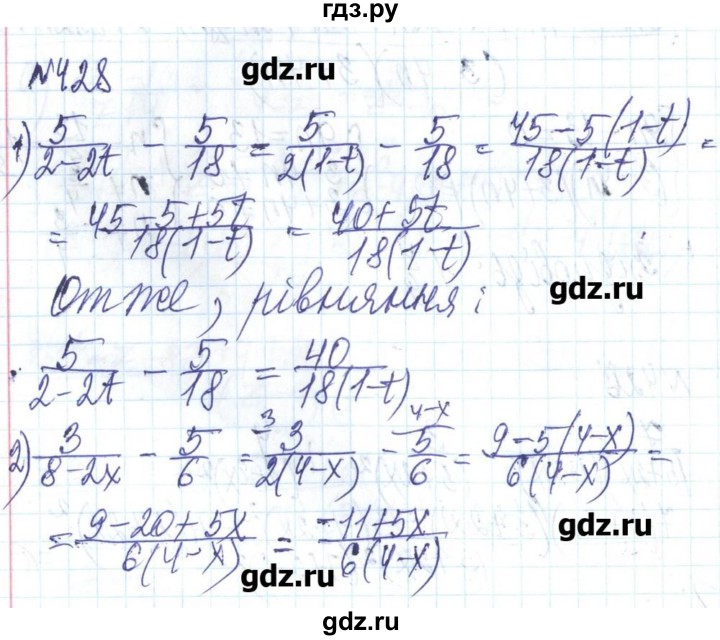 гдз.ру
№428
gdz.ru
1) 5/(2-2t) - 5/18 = 5/(2(1-t)) - 5/18 = (45-5(1-t))/(18(1-t)) =
= (45-5+5t)/(18(1-t)) = (40+5t)/(18(1-t))
Отже, рівняння:
gdz.ru
5/(2-2t) - 5/18 = 40/(18(1-t))
2) 3/(8-2x) - 5/6 = ³⁾3/(2(4-x)) - ⁴⁻ˣ⁾5/6 = (9-5(4-x))/(6(4-x)) =
gdz.ru
= (9-20+5x)/(6(4-x)) = (-11+5x)/(6(4-x))
gdz.ru
гдз.ру